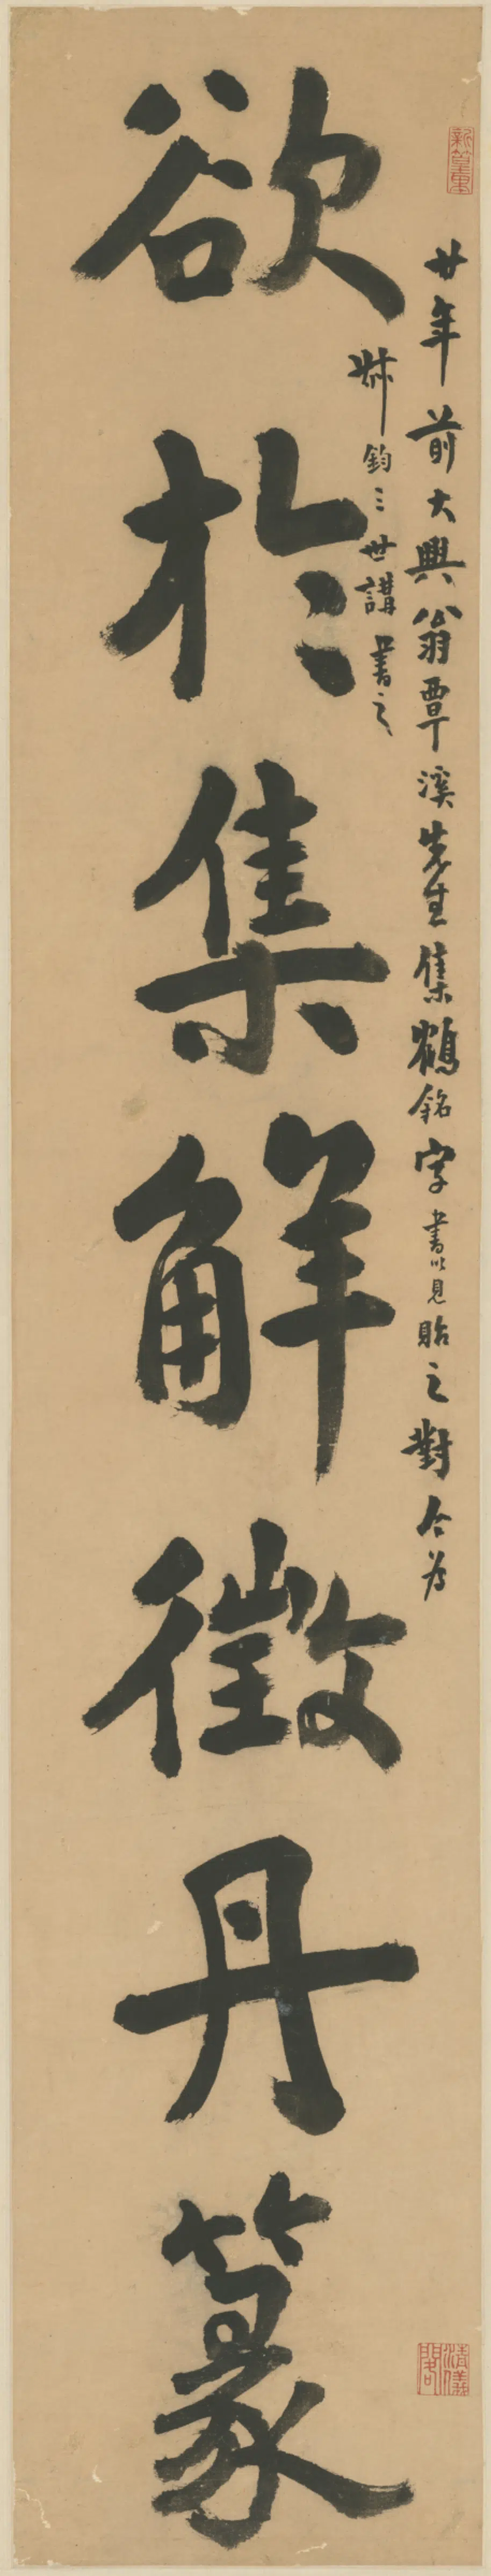 新篁里
廿年前大興翁覃溪先生集鶴銘字書以見貽之對今為
叔鈞三世講書之
欲於集解徵丹篆
清儀閣